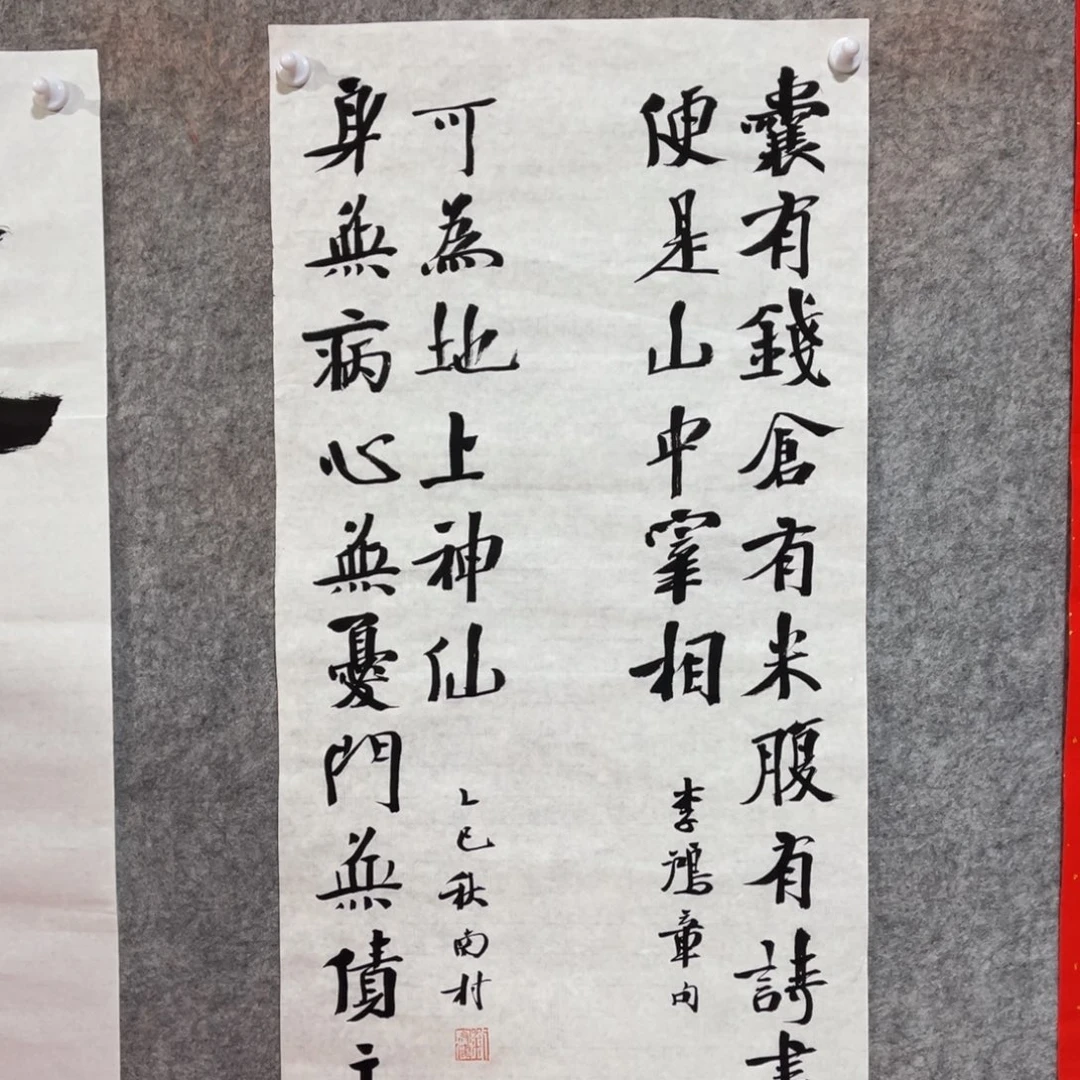 囊有錢倉有米腹有詩書
便是山中宰相
李鴻章句
身無病心無憂門無債主
可為地上神仙
乙巳秋南村